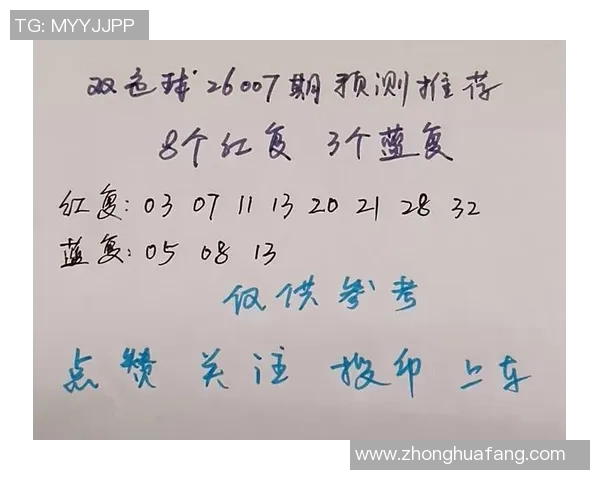 TG: MYYJJPP
双色球26007期预测推荐
8个红复 3个蓝复
红复: 03 07 11 13 20 21 28 32
蓝复: 05 08 13
仅供参考
点赞 关注 投印 上车
www.zhonghuafang.com